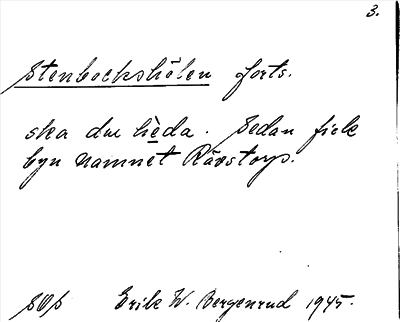 3.
Stenbockshölen forts.
ska du hèda. Sedan fick
byn namnet Rävstorp.
SOp Erik W. Bergenrud 1945.